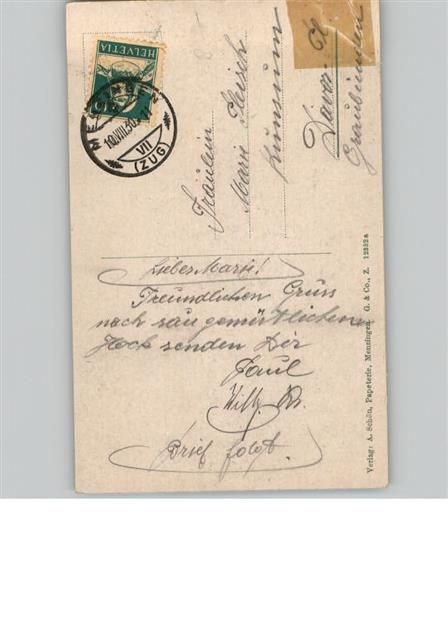 HELVETIA
MENZINGEN
10.VIII.30
VII
(ZUG)
Fräulein
Marie
Konsum
Davos
Graubünden
Lieber Marie!
Freundlichen Gruss
nach sau gemütlichem
Hock senden Dir
Paul
Willy
Brief folgt.
Verlag: A. Schön, Papeterie, Menzingen G. & Co., Z. 12332a